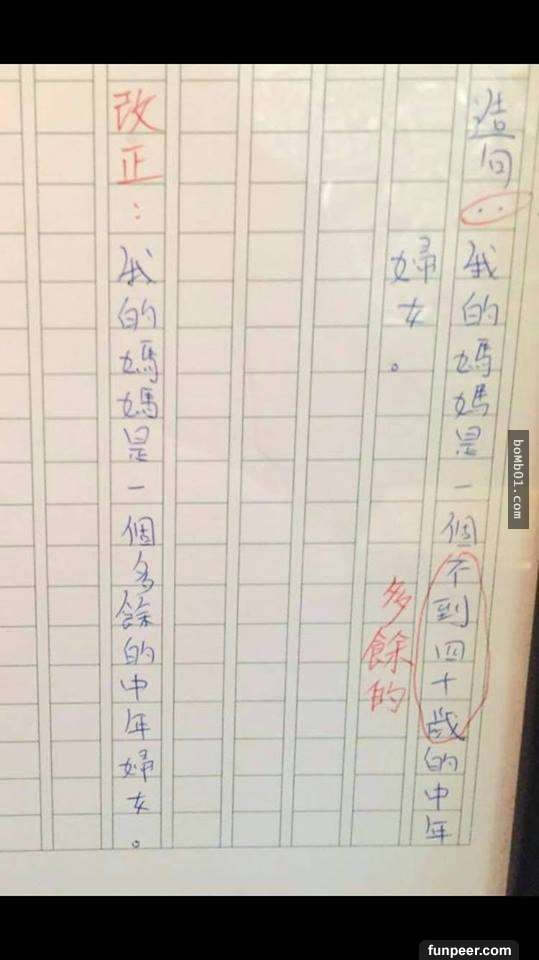 造句：
我的媽媽是一個不到四十歲的中年
婦女。
多餘的
改正：
我的媽媽是一個多餘的中年婦女。
boMb01.com
funpeer.com